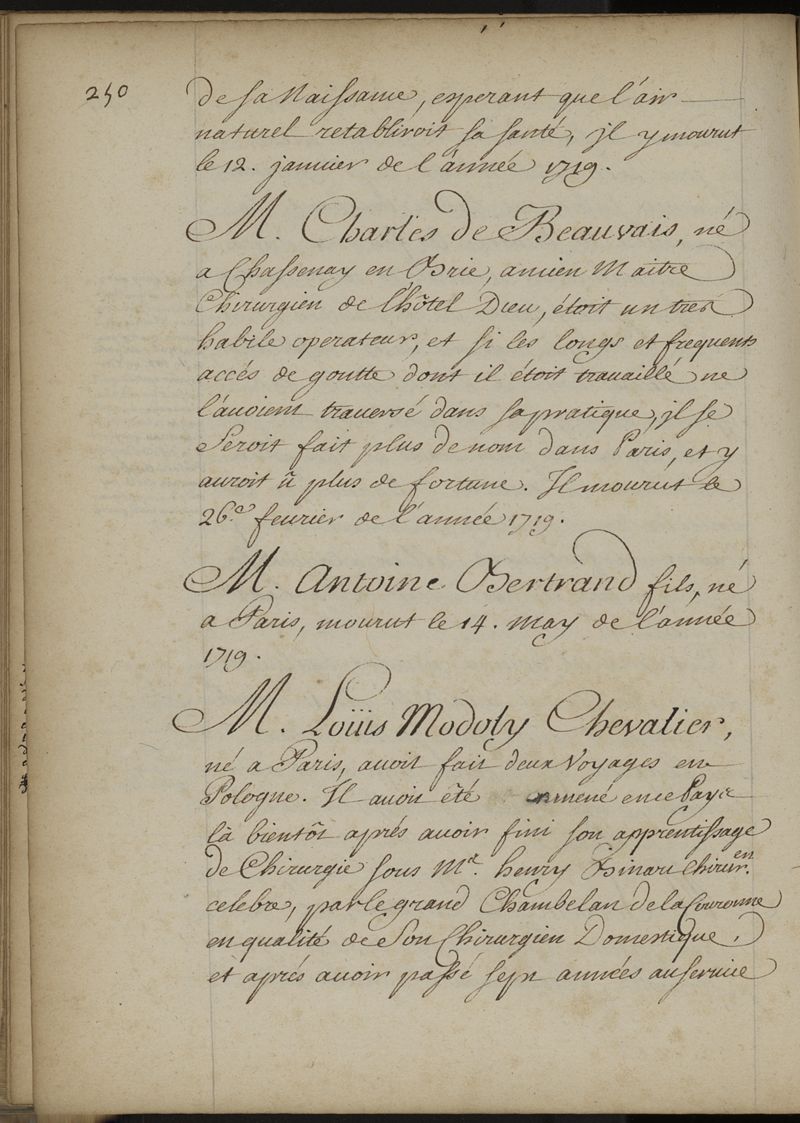 250
de sa Naissance, esperant que l'air
naturel retabliroit sa santé, jl y mourut
le 12. janvier de l'année 1719.
M. Charles de Beauvais, né
a Chassenay en Brie, ancien Maitre
Chirurgien de l'hôtel Dieu, étoit un tres
habile operateur, et si les longs et frequents
accés de goutte dont il étoit travaillé ne
l'auoient trauersé dans sa pratique, jl se
Seroit fait plus de nom dans Paris, et y
auroit û plus de fortune. Il mourut le
26.e feurier de l'année 1719.
M. Antoine Bertrand fils, né
a Paris, mourut le 14. may de l'année
1719.
M. Loüis Modoty Chevalier,
né a Paris, auoit fait deux Voyages en
Pologne. Il auoit été emmené en ce Pays
là bientôt aprés auoir fini son apprentissage
de Chirurgie sous Mr. henry Chirur.en
celebre, par le grand Chambelan de la Couronne
en qualité de Son Chirurgien Domestique,
et aprés auoir passé sept années au seruice